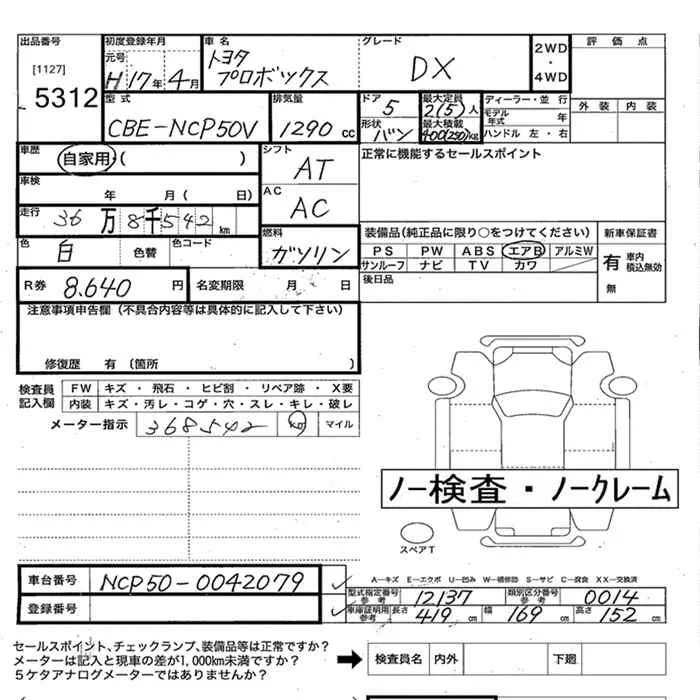 出品番号 初度登録年月 車名 グレード 2WD・4WD 評価点
[1127] 元号 トヨタ
5312 H17年4月 プロボックス DX
型式 排気量 ドア 5 最大定員 2(5)人 ディーラー・並行 外装 内装
CBE-NCP50V 1290cc 形状 バン 最大積載 400(250)kg モデル年式 年
ハンドル 左・右
車歴 自家用・( ) シフト AT 正常に機能するセールスポイント
車検 年 月( 日) AC AC
走行 36万8千542km
色 白 色替 色コード 燃料 ガソリン
装備品(純正品に限り○をつけてください) 新車保証書
PS PW ABS エアB アルミW 有 車内積込無効
サンルーフ ナビ TV カワ
R券 8.640円 名変期限 月 日 後日品 無
注意事項申告欄(不具合内容等は具体的に記入して下さい)
修復歴 有(箇所 )
検査員記入欄 FW キズ・飛石・ヒビ割・リペア跡・X要
内装 キズ・汚レ・コゲ・穴・スレ・キレ・破レ
メーター指示 368542 km マイル
ノー検査・ノークレーム
スペアT
車台番号 NCP50-0042079
A―キズ E―エクボ U―凹み W―補修跡 S―サビ C―腐食 XX―交換済
型式指定番号 参考 12137 類別区分番号 参考 0014
登録番号 車庫証明用 参考 長さ 419cm 幅 169cm 高さ 152cm
セールスポイント、チェックランプ、装備品等は正常ですか?
メーターは記入と現車の差が1,000km未満ですか?
5ケタアナログメーターではありませんか?
検査員名 内外 下廻